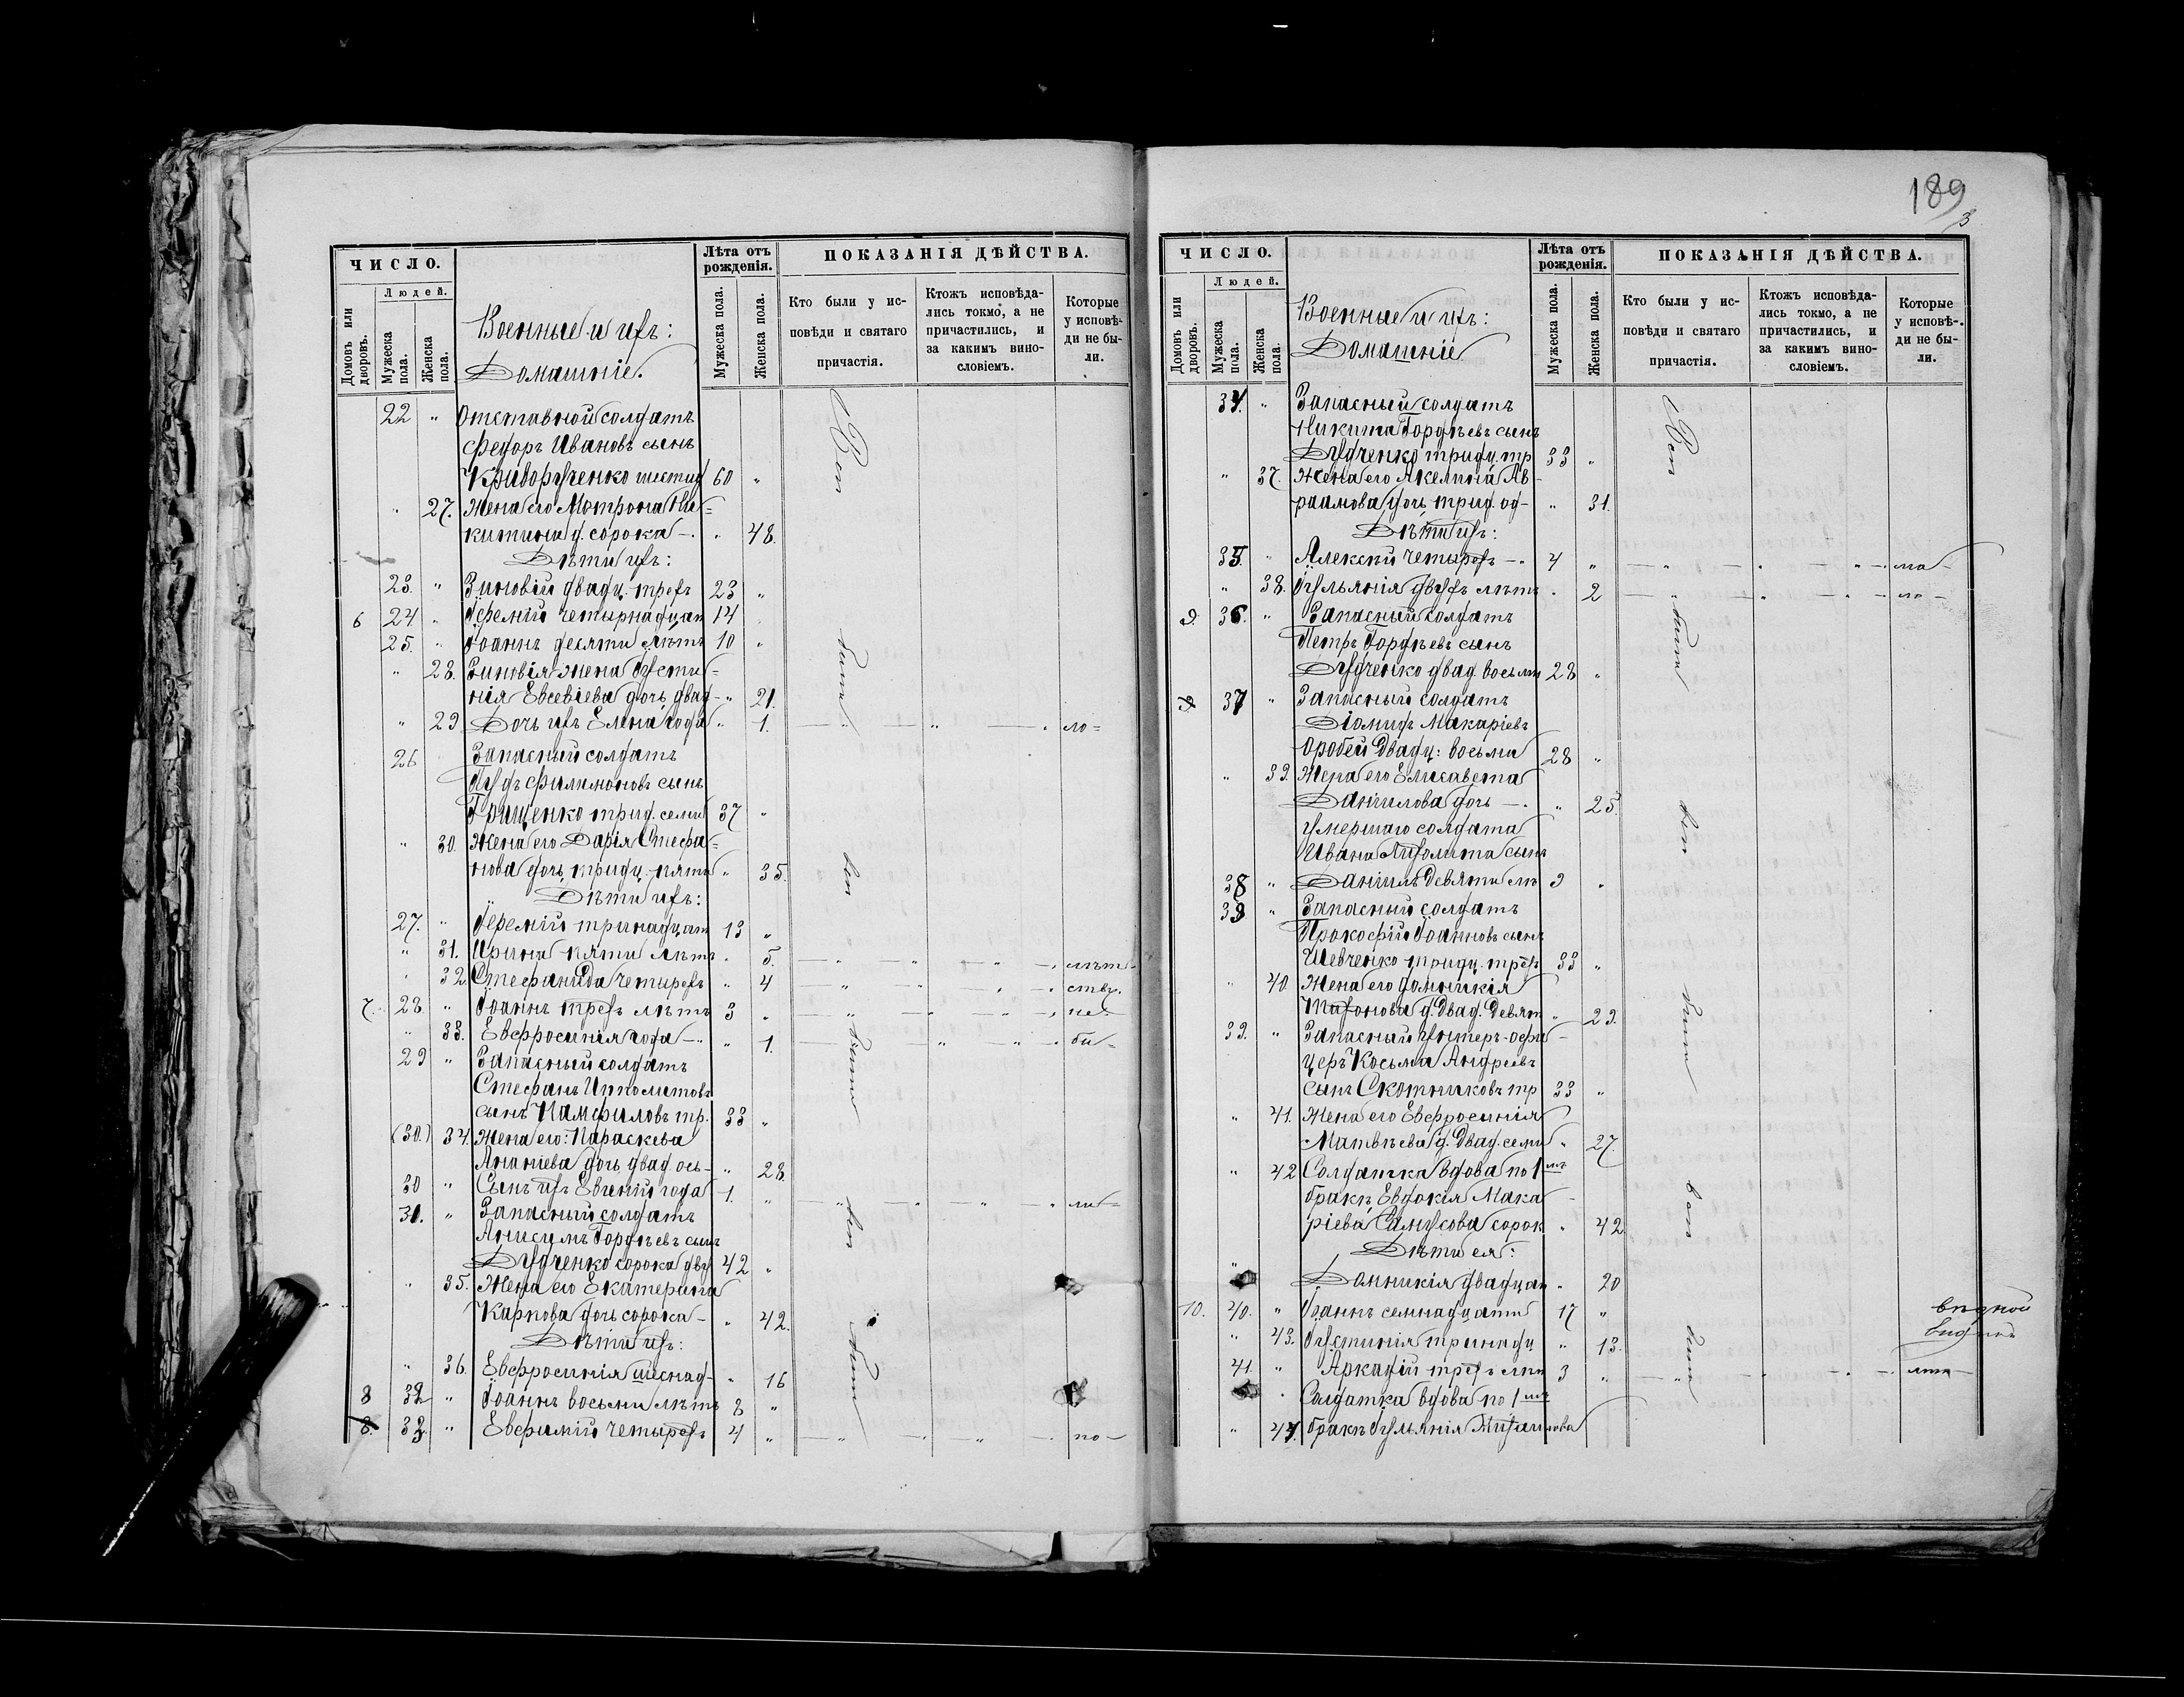 ЧИСЛО.
Людей.
Домовъ или дворовъ.
Мужеска пола.
Женска пола.
Военные и ихъ:
Домашніе.
Лѣта отъ рожденія.
Мужеска пола.
Женска пола.
ПОКАЗАНІЯ ДѢЙСТВА.
Кто были у исповѣди и святаго причастія.
Ктожъ исповѣдались токмо, а не причастились, и за какимъ винословіемъ.
Которые у исповѣди не были.
22 " Отставной солдатъ
Федоръ Ивановъ сынъ
Криворученко шестид 60 "
" 27. Жена его Матрона Ни=
китина д. сорока -. " 48.
Дѣти ихъ:
23. " Зиновій двадц. трехъ 23 "
6 24 " Іеремій четырнадцат 14
25. " Іоаннъ десяти лѣтъ 10 "
" 28. Зиновія жена Іусти=
нія Евсевіева дочь двад- " 21.
" 29 Дочь ихъ Елена года " 1. — " — " — " ло=
26 Запасный солдатъ
Іудъ Филимоновъ сынъ
Грищенко трид. семи 37 "
" 30. Жена его Дарія Стефа=
нова дочь тридц. пяти " 35.
Дѣти ихъ:
27. " Іеремій тринадцат 13 "
" 31. Ирина пяти лѣтъ " 5. — " — " — " — " лѣт-
" 32. Стефанида четырехъ " 4 — " — " — " ств.
7. 28. " Іоаннъ трехъ лѣтъ 3 " — " — " — " не
" 33. Евфросинія года — " " 1. — " — " — " бы-
29 " Запасный солдатъ
Стефанъ Ипполитовъ
сынъ Памфиловъ тр. 33 "
(30.) 34. Жена его: Параскева
Ананіева дочь двад. ось- " 28.
30 " Сынъ ихъ Евгеній года 1. " — " — " — " ли-
31. " Запасный солдатъ
Анисимъ Гордѣевъ сынъ
Дудченко сорока дву 42 "
" 35. Жена его Екатерина
Карпова дочь сорока - " 42.
Дѣти ихъ:
" 36. Евфросинія шеснад- " 16
8 32 " Іоаннъ восьми лѣтъ 8 "
8. 33 " Евфимій четырехъ 4 " — " — " — " по-
Вси
были
вси
были
вси
были
189
3
ЧИСЛО.
Людей.
Домовъ или дворовъ.
Мужеска пола.
Женска пола.
Военные и ихъ:
Домашніе
Лѣта отъ рожденія.
Мужеска пола.
Женска пола.
ПОКАЗАНІЯ ДѢЙСТВА.
Кто были у исповѣди и святаго причастія.
Ктожъ исповѣдались токмо, а не причастились, и за какимъ винословіемъ.
Которые у исповѣди не были.
34. " Запасный солдатъ
Никита Гордѣевъ сынъ
Дудченко тридц. тр 33 "
" 37. Жена его Акелина Ав-
раамова дочь трид. од- " 31.
Дѣти ихъ:
35. " Алексѣй четырехъ — " 4 " — " — " — " — ма-
" 38. Іульянія двухъ лѣтъ " 2 — " — " — " — ло-
9. 36. " Запасный солдатъ
Петръ Гордѣевъ сынъ
Дудченко двад. восьми 28 "
9 37 " Запасный солдатъ
Діомидъ Макаріевъ
Оробей двадц: восьми 28 "
" 39. Жена его Елисавета
Даніилова дочь —. " 25.
умершаго солдата
Ивана сынъ
38 " Даніилъ девяти лѣ 9 "
39 " Запасный солдатъ
Прокофій Іоанновъ сынъ
Шевченко тридц. трех 33 "
" 40 Жена его Домникія
Тихонова д. двад. девят " 29.
39. " Запасный унтеръ-офи-
церъ Косьма Андреевъ
сынъ Скотниковъ тр 33 "
" 41. Жена его Евфросинія
Матвѣева д. двад. семи " 27.
" 42 Солдатка вдова по 1мъ
бракѣ Евдокія Мака-
ріева Самусова сорок " 42.
Дѣти ея:
" Домникія двадцат " 20
10. 40. " Іоаннъ семнадцати 17 "
" 43. Іустинія тринадц " 13.
41. " Аркадій трехъ лѣт 3 " — " — " — " —
Солдатка вдова по 1мъ
" 44. бракѣ Іульянія Михаилова
Вси
были
вси
были
вси
были